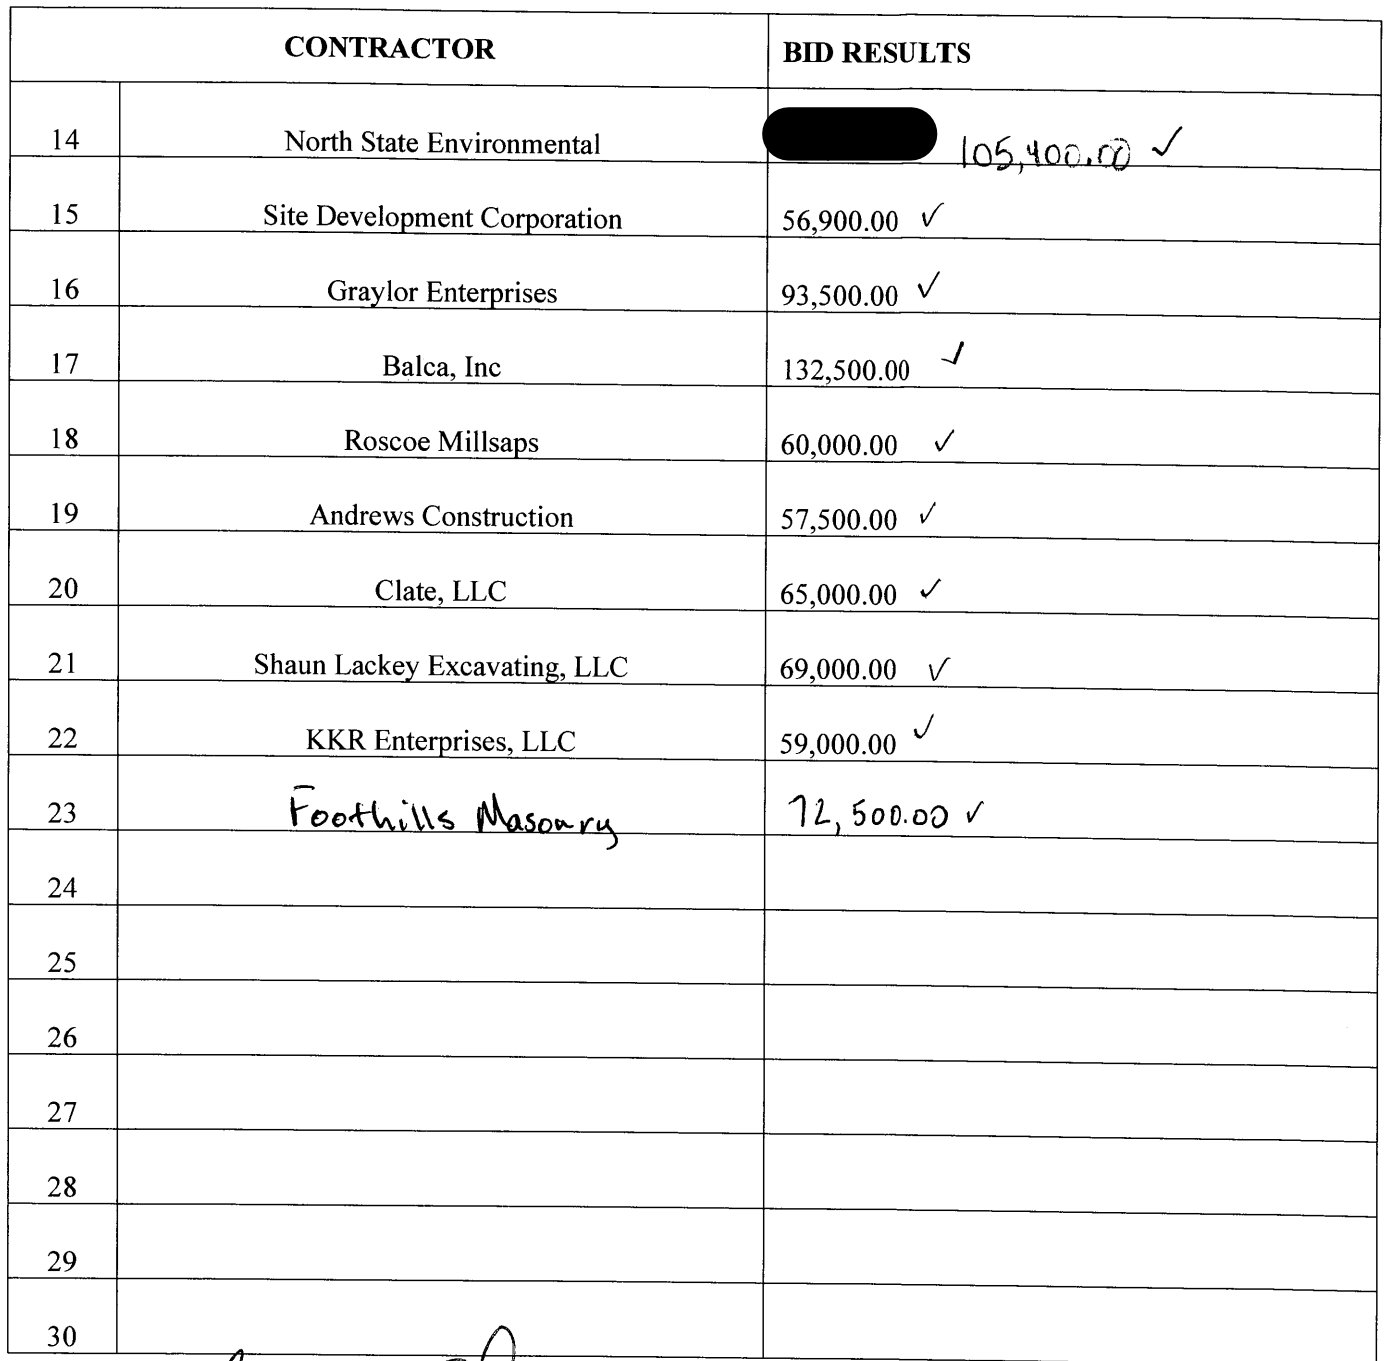 CONTRACTOR BID RESULTS
14 North State Environmental 105,400.00 ✓
15 Site Development Corporation 56,900.00 ✓
16 Graylor Enterprises 93,500.00 ✓
17 Balca, Inc 132,500.00 ✓
18 Roscoe Millsaps 60,000.00 ✓
19 Andrews Construction 57,500.00 ✓
20 Clate, LLC 65,000.00 ✓
21 Shaun Lackey Excavating, LLC 69,000.00 ✓
22 KKR Enterprises, LLC 59,000.00 ✓
23 Foothills Masonry 72,500.00 ✓
24
25
26
27
28
29
30